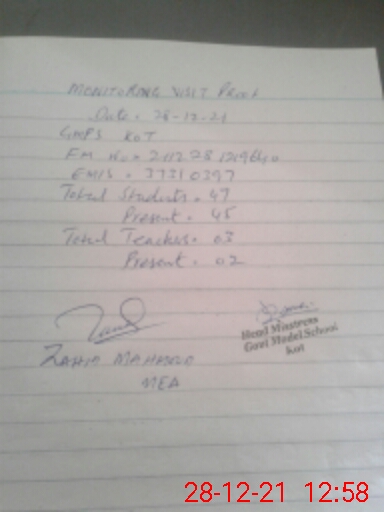 MONITORING VISIT PROOF
Date. 28-12-21
GMPS KOT
EMIS = 37310397
Total Students = 47
Present = 45
Total Teachers = 03
Present = 02
ZAHID MAHMOOD
MEA
Head Mistress
Govt Model School
Kot
28-12-21 12:58